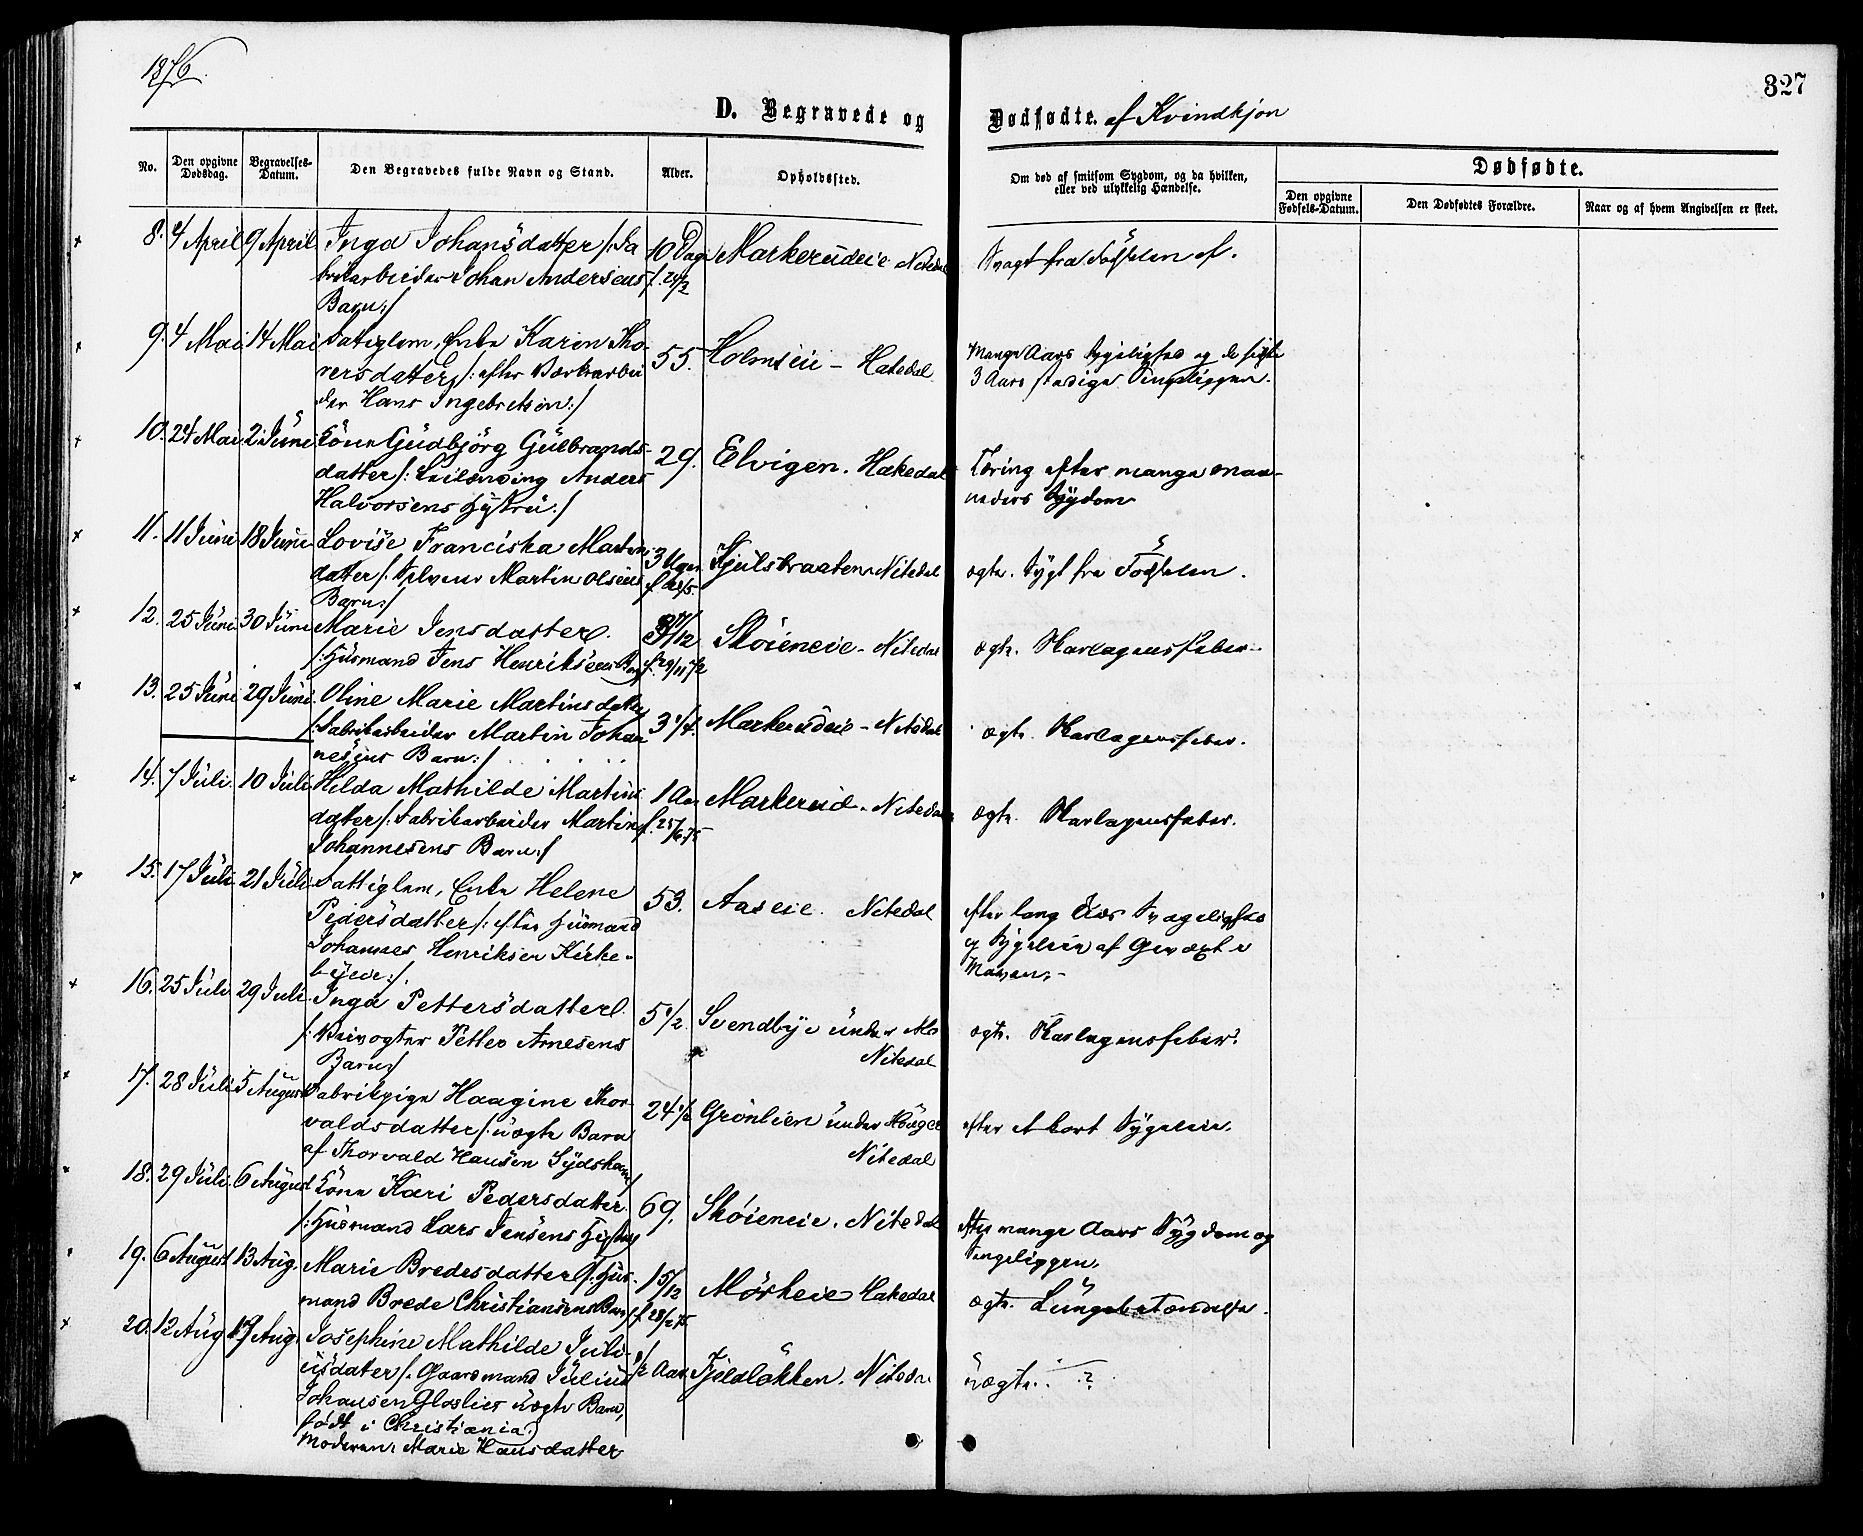 1876.
327
D. Begravede og Dødfødte. af Kvindkjøn
No.
Den opgivne Dødsdag.
Begravelses-Datum.
Den Begravedes fulde Navn og Stand.
Alder.
Opholdssted.
Om død af smitsom Sygdom, og da hvilken,
eller ved ulykkelig Hændelse.
Dødfødte.
Den opgivne Fødsels-Datum.
Den Dødfødtes Forældre.
Naar og af hvem Angivelsen er skeet.
8. 4 April 9 April Inga Johansdatter /: Fa 10 Dage Markerudeie Nitedal Svagt fra Fødselen af.
brikarbeider Johan Andersens f. 24/3
Barn :/
9. 4 Mai 14 Mai Fattiglem, Enke Karen Tho- 55. Holmseie - Hakedal. Mange Aars Sygelighed og de sidste
rersdatter /: efter Værksarbei 3 Aars stadige Sengeliggen.
der Hans Ingebretsen :/
10. 24 Mai 2 Juni Kone Gudbjörg Gulbrands- 29. Elvigen. Hakedal Tæring efter mange maa-
datter /: Leilænding Anders neders Sygdom
Halvorsens Hustru :/
11. 11 Juni 18 Juni Lovise Franciska Martins 3 Uger Kjulsbraaten Nitedal ægte. Sygt fra Födselen.
datter /: Selveier Martin Olsens
Barn :/
12. 25 Juni 30 Juni Marie Jensdatter. Sköieneie - Nitedal ægte. Skarlagensfeber.
/: Husmand Jens Henriksens Barn
13. 25 Juni 29 Juni. Oline Marie Martinsdatter 3 1/4. Markerudeie - Nitedal ægte. Skarlagensfeber.
/: Fabrikarbeider Martin Johan
nesens Barn :/
14. 7 Juli. 10 Juli Helda Mathilde Martins 1 Aar Markerud. Nitedal ægte. Skarlagensfeber.
datter /: Fabrikarbeider Martin f. 25/6 75
Johannesens Barn :/
15. 17 Juli 21 Juli Fattiglem, Enke Helene 53. Aaseie. Nitedal efter lang Tids Svagelighed
Pedersdatter /: efter Husmand og Sygeleie af Gevæxt i
Johannes Henriksen Kirke- Maven.
byeie :/
16. 25 Juli 29 Juli. Inga Pettersdatter. 5 1/2. Svendbye under Mo ægte. Skarlagensfeber.
/: Veivogter Petter Arnesens Nitedal
Barn :/
17. 28 Juli 5 August Fabrikpige Haagine Thor- 24 1/2 Grönlien under efter et kort Sygeleie.
valdsdatter /: uægte Barn Nitedal
af Thorvald Hansen Sydskam /
18. 29 Juli. 6 August Kone Kari Pedersdatter 69. Sköieneie. Nitedal efter mange Aars Sygdom og
/: Husmand Lars Jensens Hustru Sengeliggen.
19. 6 August 13 Aug. Marie Bredesdatter /: Hus- 15/12 Mörkeie Hakedal ægte. Lungebetændelse.
mand Brede Christiansens Barn
20. 12 Aug Aug. Josephine Mathilde Juli- 1/2 Aar. Fjeldlökken. Nitedal uægte. ?
usdatter /: Gaardmand Julius
Johansen Gloslies uægte Barn,
født i Christiania.
Moderen: Marie Hansdatter